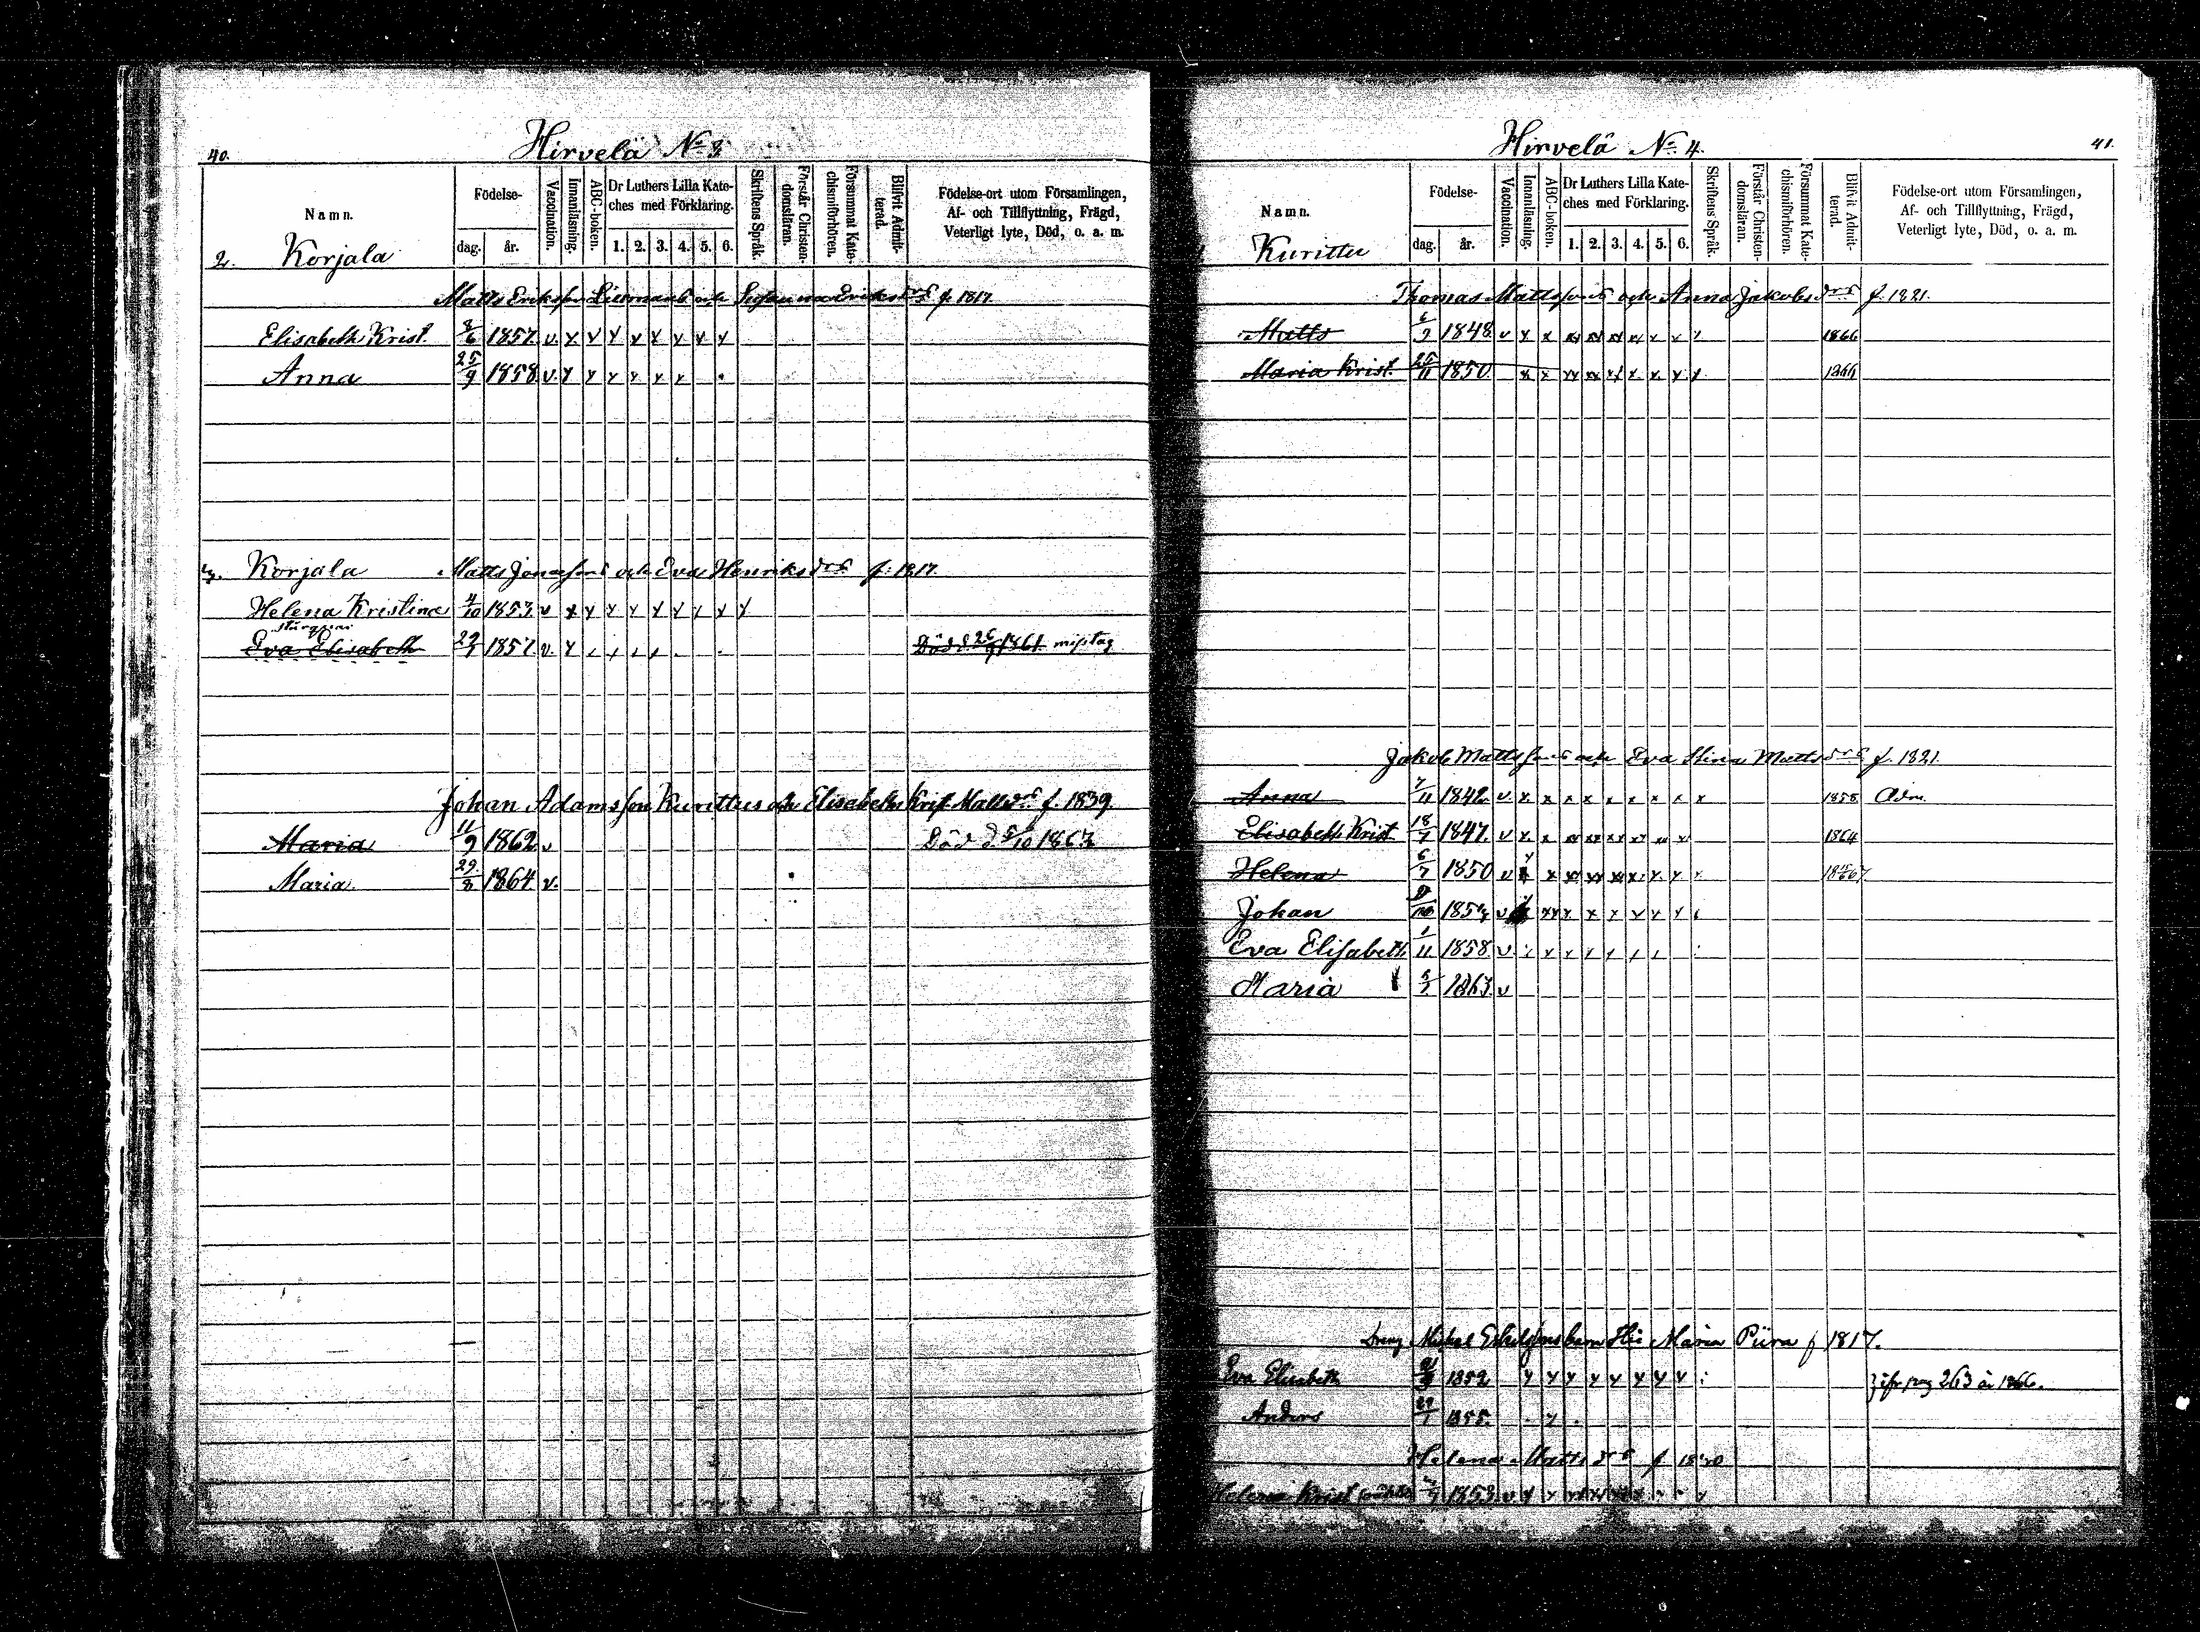 40.
Hirvelä No 3
Namn.
Födelse-
dag.
år.
Vaccination.
Innanläsning.
ABC-boken.
Dr Luthers Lilla Kate-
ches med Förklaring.
1. 2. 3. 4. 5. 6.
Skriftens Språk.
Förstår Christen-
domsläran.
Försummat Kate-
chismiförhören.
Blifvit Admit-
terad.
Födelse-ort utom Församlingen,
Af- och Tillflyttning, Frägd,
Veterligt lyte, Död, o. a. m.
2. Korjala
Matts Eriksson och Susanna Eriksdrs f. 1817.
Elisabeth Krist. 8/6 1857. v. x v y v y v v y
Anna 25/9 1858. v. y y y y y y
3. Korjala Matts och Eva Henriksdrs f. 1817.
Helena Kristina 4/10 1853. v x y y y y y y y y
Eva Elisabeth 29/7 1857. v. y Död d. 26/9 1861. misstag
Johan Adamsson Kurittus och Elisabeth Krist. Mattsdrs f. 1839.
Maria 11/9 1862. v Död d. 5/10 1867.
Maria 29/8 1864 v.
Hirvelä No 4.
41.
Namn.
Födelse-
dag.
år.
Vaccination.
Innanläsning.
ABC-boken.
Dr Luthers Lilla Kate-
ches med Förklaring.
1. 2. 3. 4. 5. 6.
Skriftens Språk.
Förstår Christen-
domsläran.
Försummat Kate-
chismiförhören.
Blifvit Admit-
terad.
Födelse-ort utom Församlingen,
Af- och Tillflyttning, Frägd,
Veterligt lyte, Död, o. a. m.
Kurittu
Thomas Mattssons och Anna Jakobsdrs f. 1821.
Matts 6/9 1848. v x x xx xx xx xx x x 1866
Maria Krist. 25/11 1850. x x xx xx xx x x. x x 1866
Jakob Mattssons och Eva Stina Mattsdrs f. 1821.
Anna 7/11 1842. v x. x x x x x x x x 1858. Adm.
Elisabeth Krist 18/7 1847. v x. x xx xx xx xx xx x 1864
Helena 6/7 1850 v x xx xx xx x. x. x 1867
Johan v xx x x x x x x
Eva Elisabeth 1/11 1858. v.
Maria 5/7 1863. v
Dreng Michel barn Maria Piira f 1817.
Eva Elisabeth 1852 y y y y y y y v
pag 263 år 1866.
Anders 29/1 1855. y
Helena Mattsdrs f 1830
Helena Krist 1853. v y